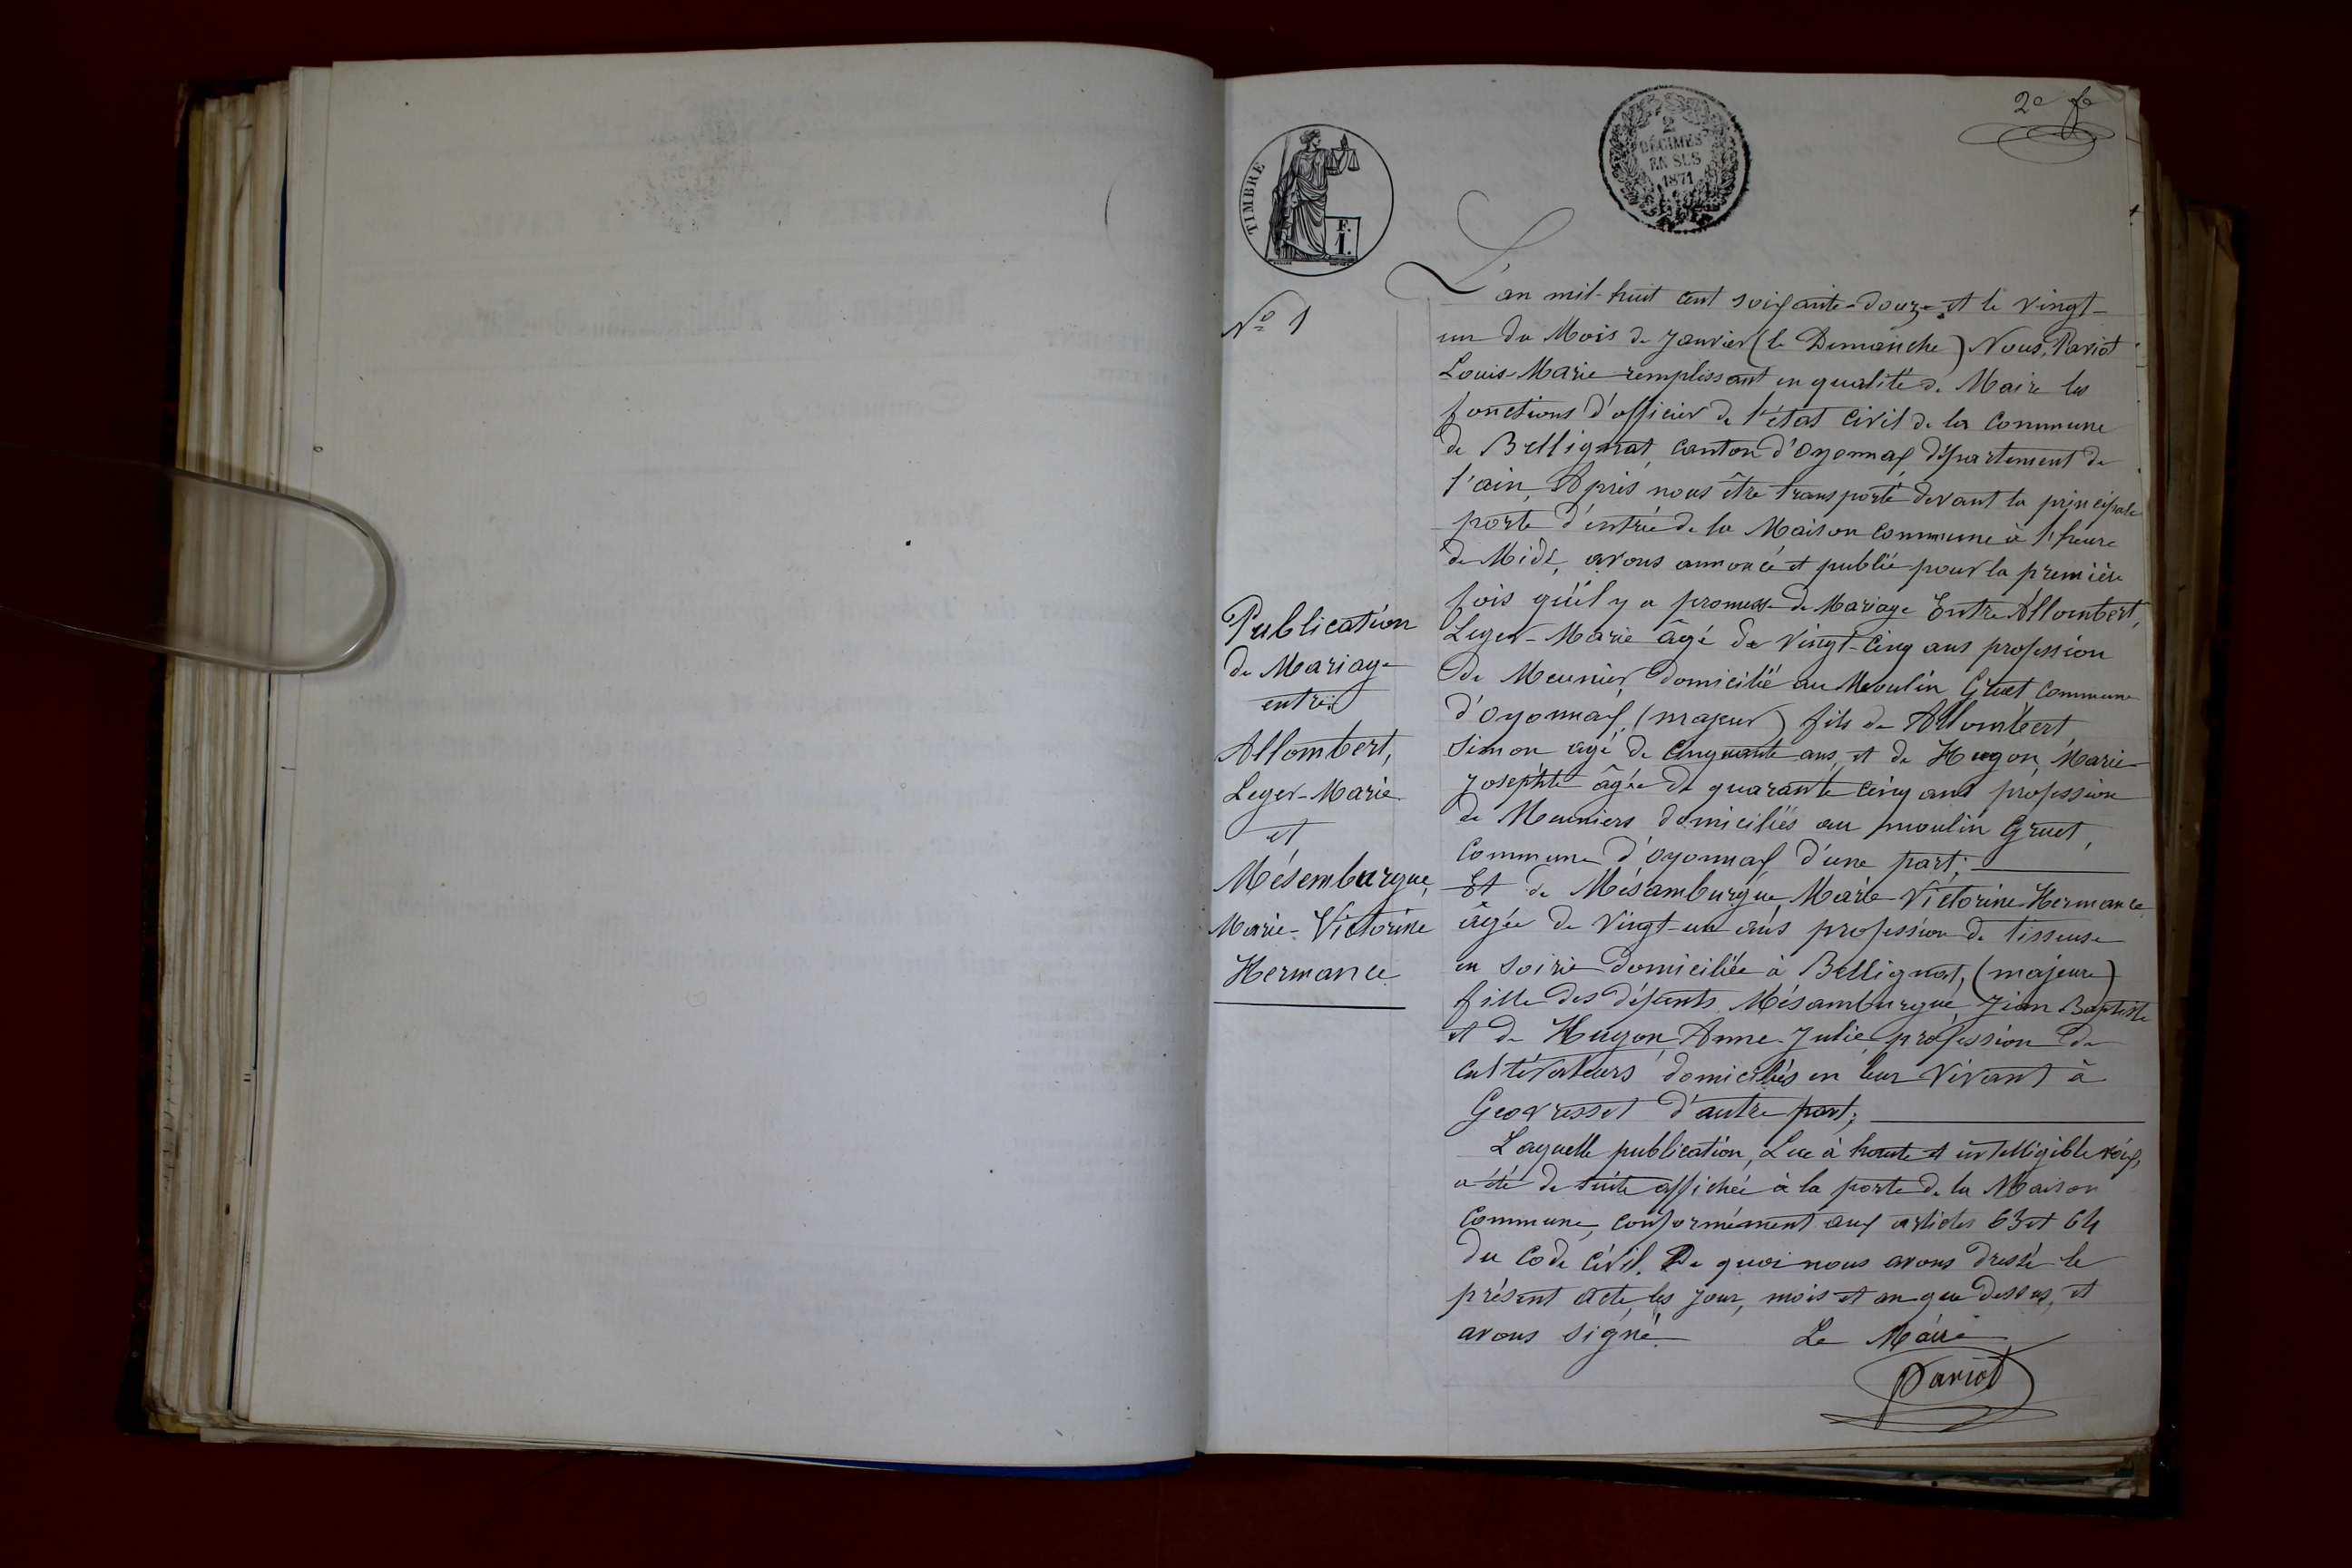 2e fo
TIMBRE
F.
1.
2
DÉCIMES
EN SUS
1871
No 1
Publication
de Mariage
entre
Allombert,
Leger-Marie
et
Mésemburgue,
Marie-Victorine
Hermance
L'an mil-huit cent soixante-douze et le vingt-
un du Mois de Janvier (le Dimanche) Nous, Pariot
Louis-Marie remplissant en qualité de Maire les
fonctions d'officier de l'état civil de la commune
de Bellignat canton d'Oyonnax département de
l'ain, Après nous être transporté devant la principale
porte d'entrée de la Maison commune à l'heure
de Midi, avons annoncé et publié pour la première
fois qu'il y a promesse de Mariage Entre Allombert,
Leger-Marie âgé de vingt-cinq ans profession
de Meunier domicilié au Moulin Gruet commune
d'Oyonnax, (majeur) fils de Allombert
Simon agé de cinquante ans, et de Hugon, Marie
Josephte âgée de quarante cinq ans profession
de Meuniers domiciliés au moulin Gruet,
commune d'Oyonnax d'une part;
Et de Mésamburgue Marie-Victorine-Hermance
âgée de vingt-un ans profession de tisseuse
en soirie domiciliée à Bellignat, (majeure)
fille des défunts Mésamburgue, Jean Baptiste
et de Hugon Anne-Julie, profession de
cultivateurs domiciliés en leur vivant à
Geovresset d'autre part;
Laquelle publication, Lue à haute et intelligible voix,
a été de suite affichée à la porte de la Maison
commune, conformément aux articles 63 et 64
du code civil. De quoi nous avons dressé le
présent acte les jour, mois et an que dessus, et
avons signé. Le Maire
Pariot